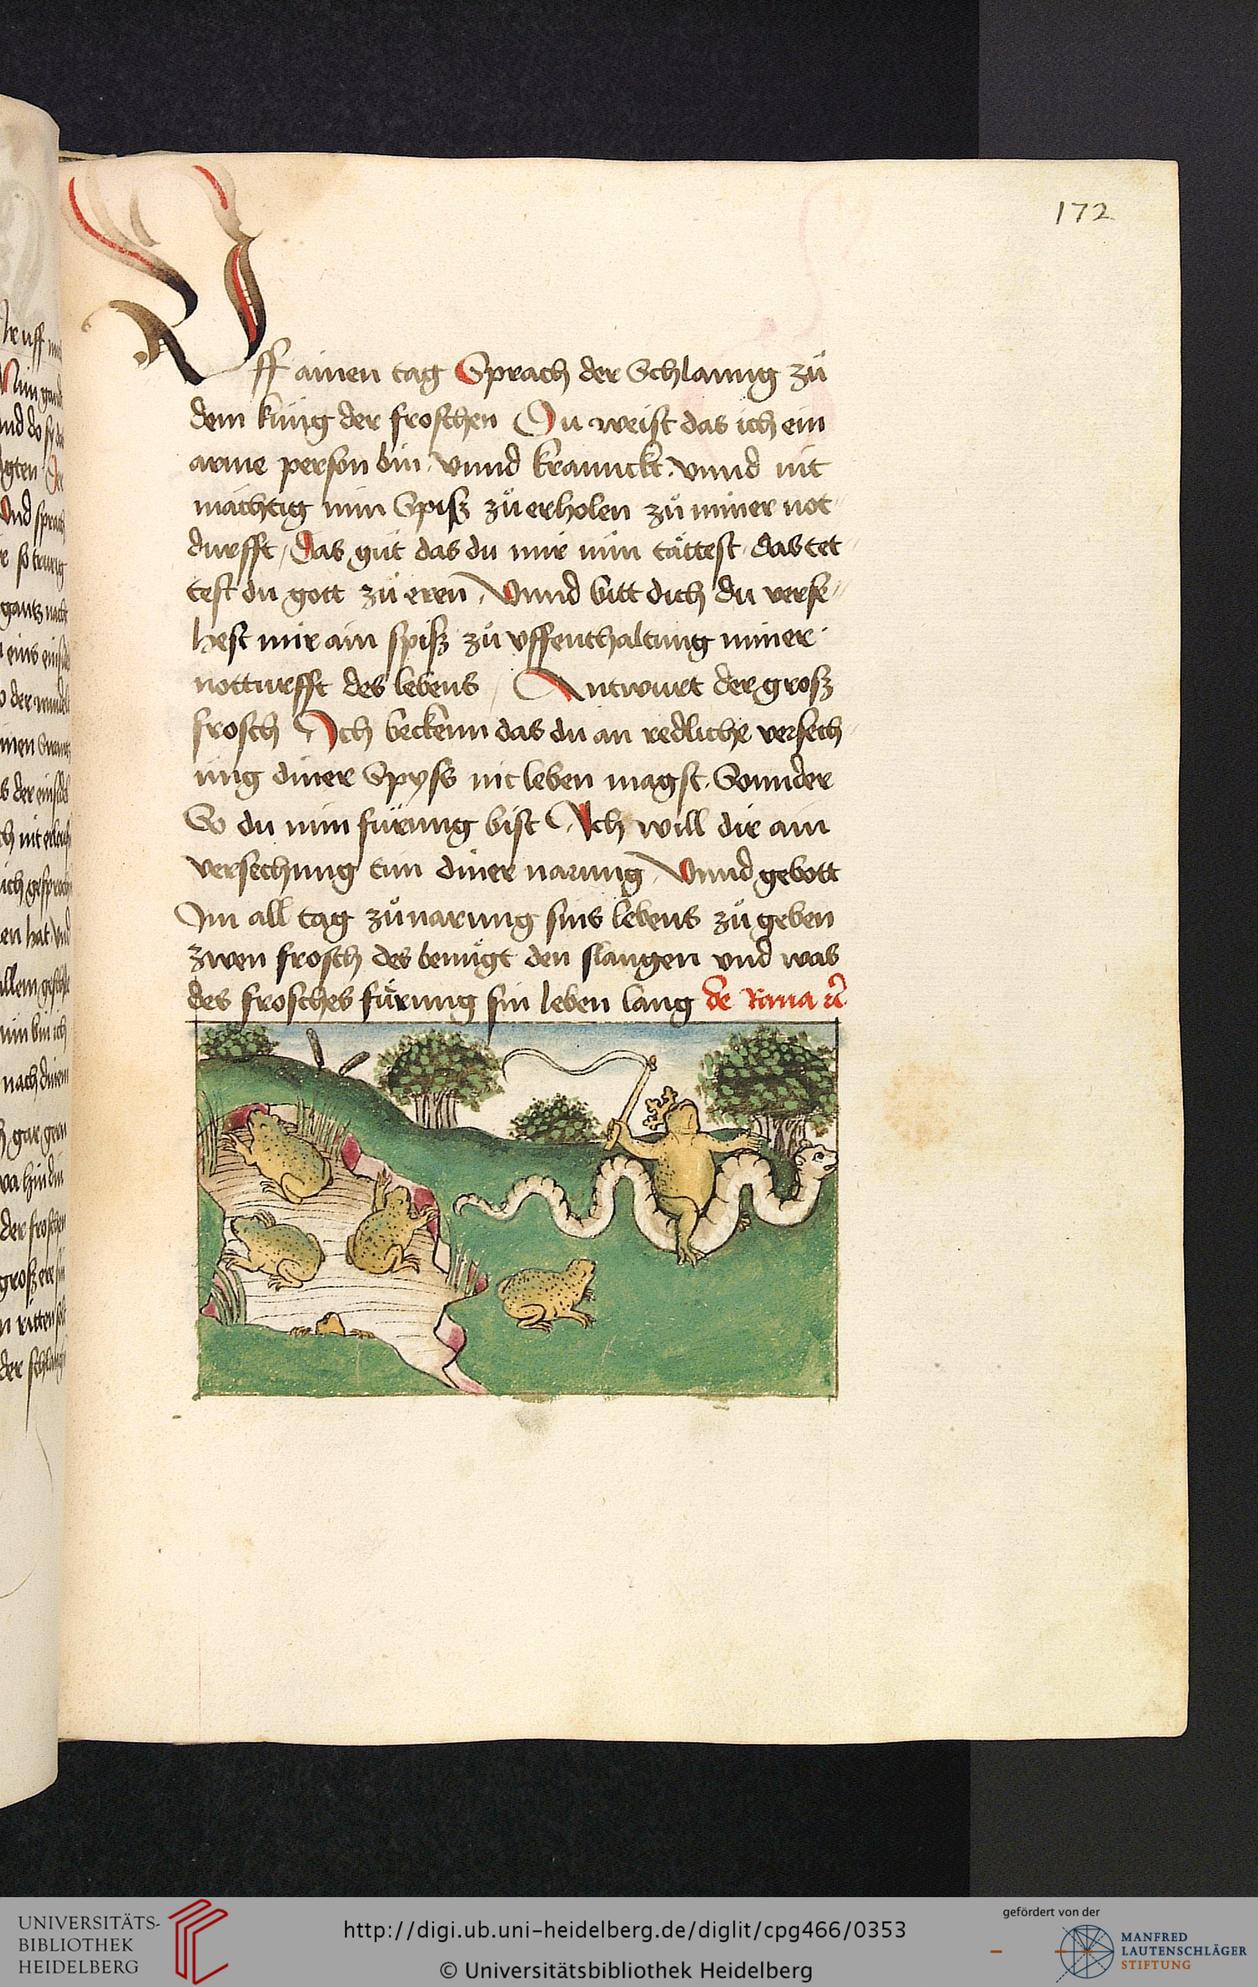 172
Vff ainen tag Sprach der Schlanng zů
dem küng der froschen Du weist das ich ein
arme person bin vnnd kranckt vnnd nit
mächtig min Spiß zů erholen zů miner not
durfft / das gůt das du mir nun tättest das tet
test du gott zů eren / Vnnd bitt dich du verse
hest mir ain spiß zů vffenthaltung miner
notturfft des lebens / Antwurt der groß
frosch Ich beckenn das du an redliche versech
ung diner Spyss nit leben magst Sonnder
So du min fürung bist Ich will dir ain
versechung tun diner narung / Vnnd gebott
Im all tag zů narung sins lebens zů geben
zwen frosch des benůgt den slangen vnd was
des frosches fürung sin leben lang de Rana
UNIVERSITÄTS-
BIBLIOTHEK
HEIDELBERG
http://digi.ub.uni-heidelberg.de/diglit/cpg466/0353
© Universitätsbibliothek Heidelberg
gefördert von der
MANFRED
LAUTENSCHLÄGER
STIFTUNG